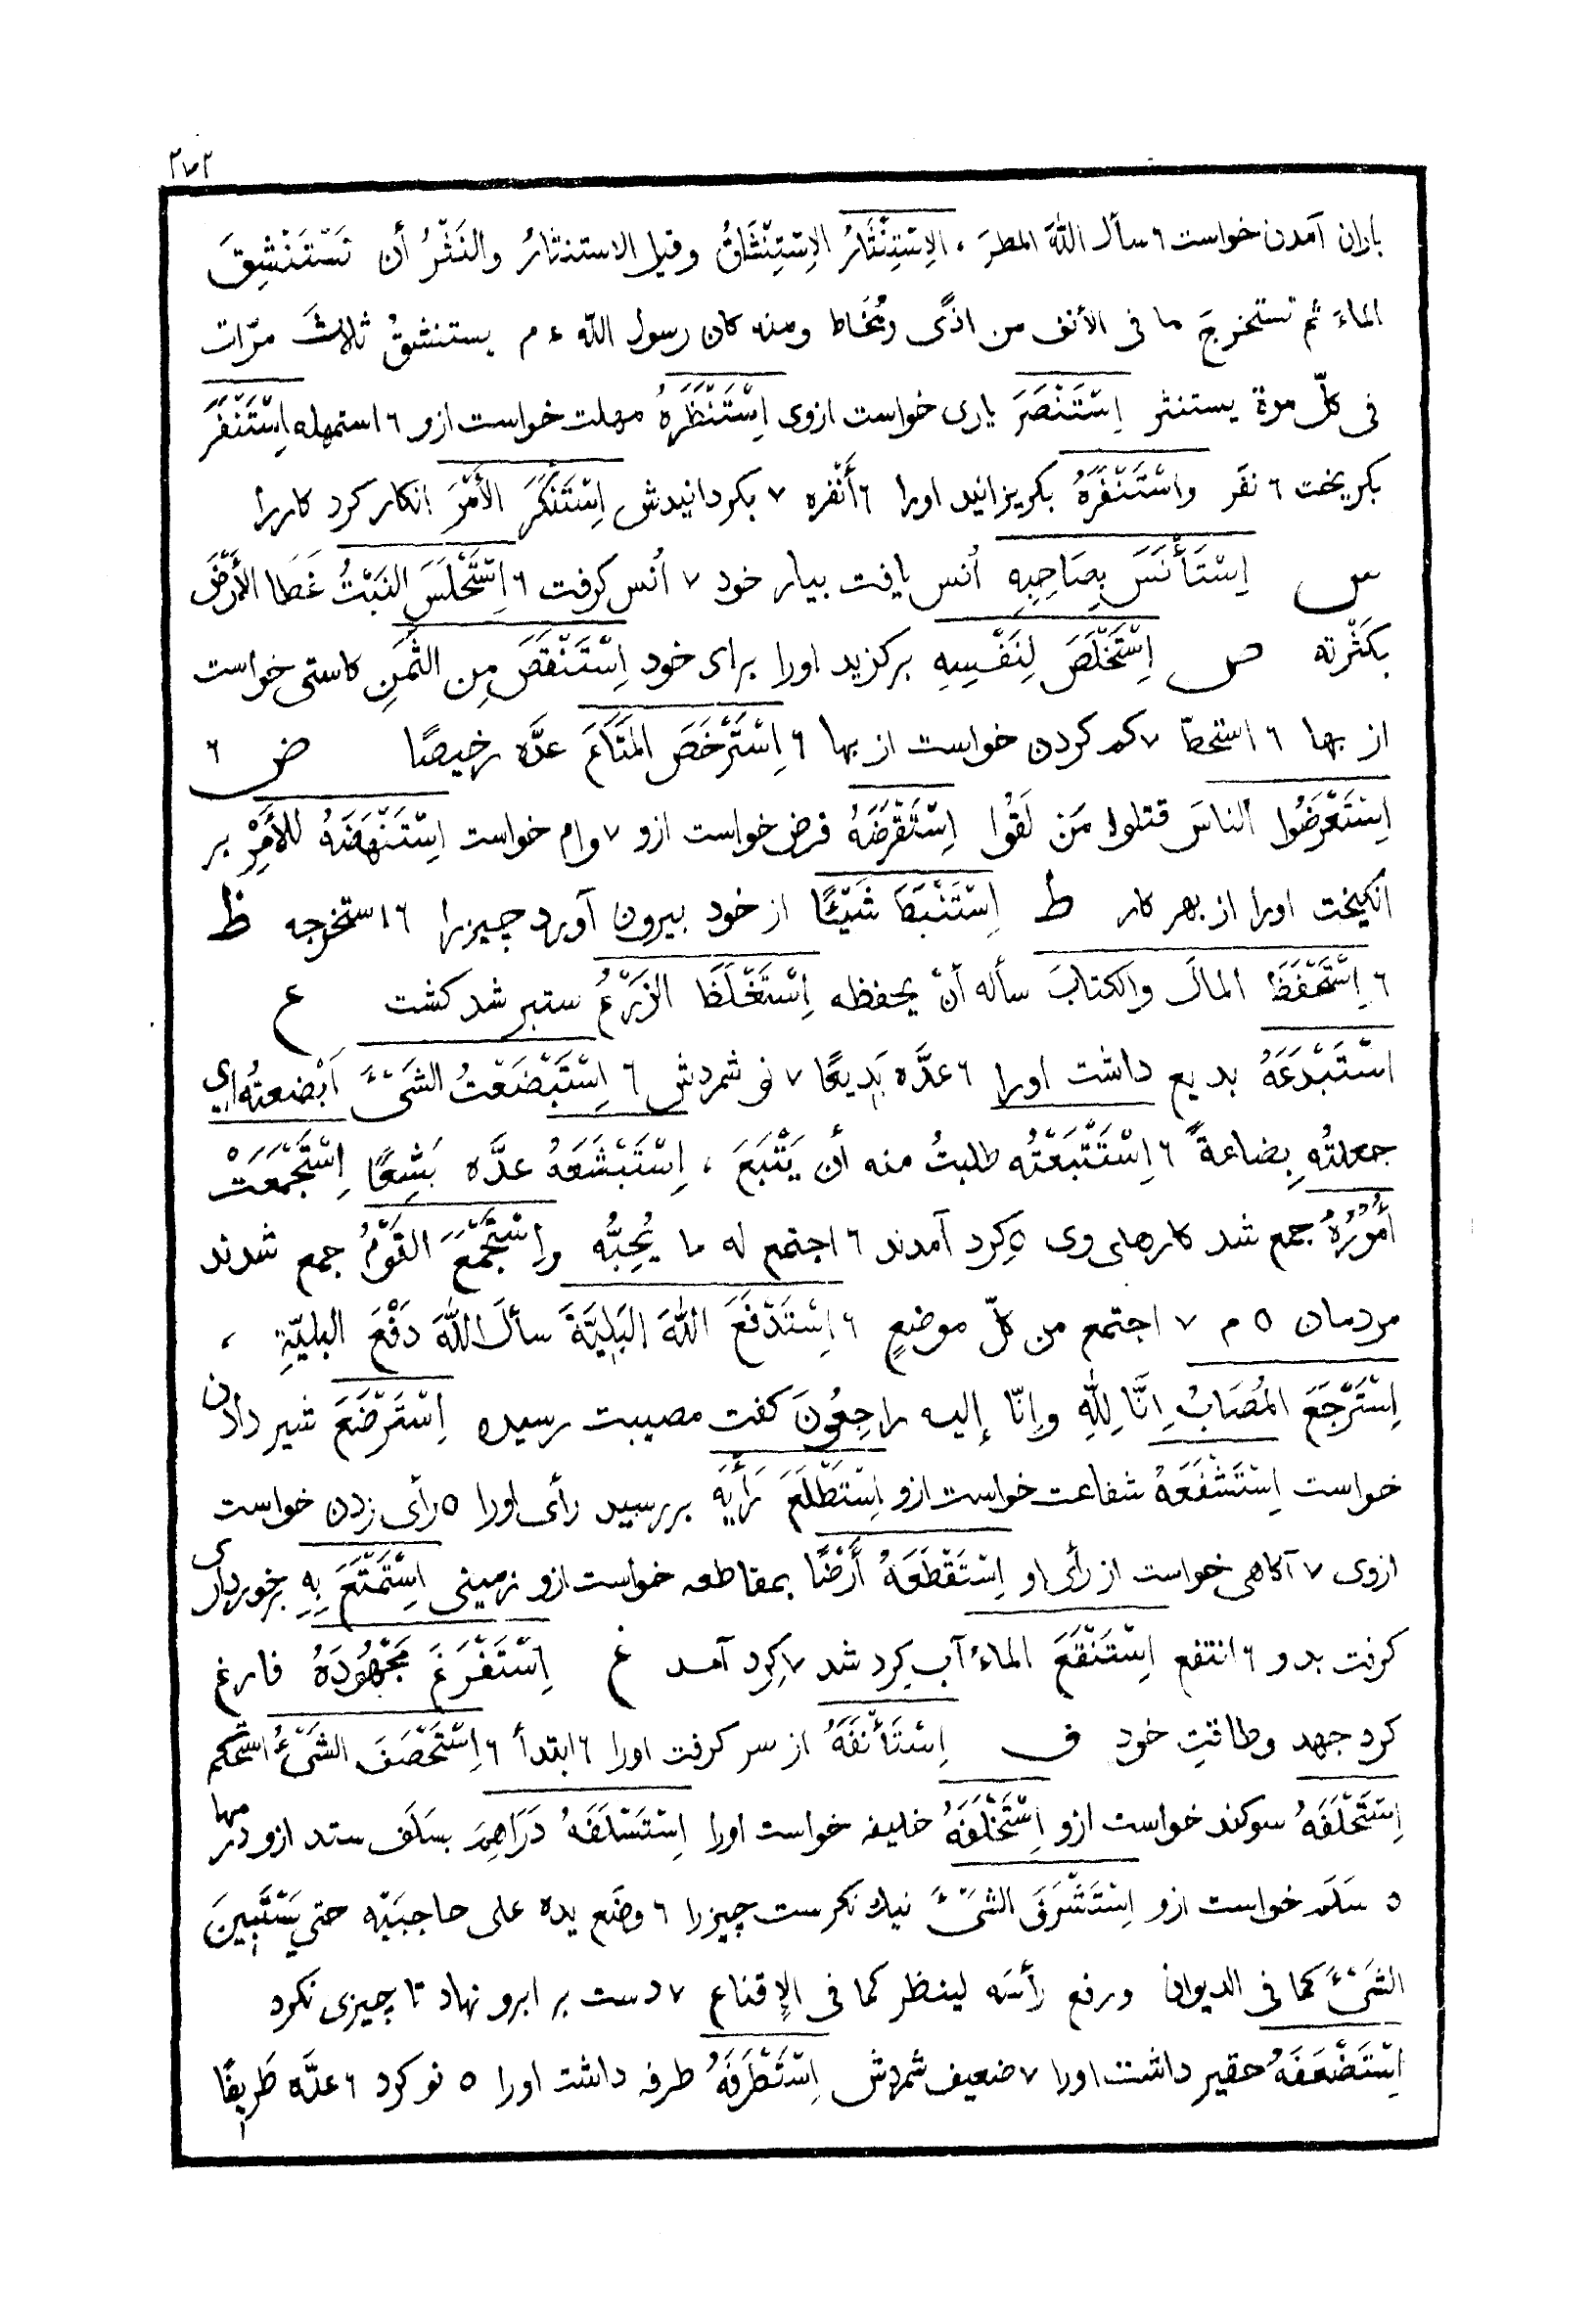 ٢٧٢
باران آمدن خواست ٦ سأل اللهَ المطرَ ، الاِسْتِنْثَارُ الاِسْتِنْشَاقُ وقيل الاستنثارُ والنَثْرُ أن تَسْتَنْشِقَ
الماءَ ثم تستخرجَ ما فى الأنف من اذًى ومُخَاط ومنه كان رسول الله ءم يستنشقُ ثلاثَ مرّات
فى كلّ مرة يستنثر اِسْتَنْصَرَ يارى خواست ازوى اِسْتَنْظَرَهُ مهلت خواست ازو ٦ استمهله اِسْتَنْفَرَ
بكريخت ٦ نفَر واسْتَنْفَرَهُ بكريزانيد اورا ٦ أَنْفره ٧ بكردانيدش اِسْتَنْكَرَ الأَمْرَ انكار كرد كاررا
س اِسْتَأْنَسَ بِصَاحِبِهِ اُنس يافت بيار خود ٧ اُنس كرفت ٦ اِسْتَحْلَسَ النَبْتُ غَطَا الأَرْضَ
بكَثْرته ص اِسْتَخْلَصَ لِنَفْسِهِ بركزيد اورا براى خود اِسْتَنْقَصَ مِن الثَمَنِ كاستى خواست
از بها ٦ استحطّ ٧ كم كردن خواست از بها ٦ اِسْتَرْخَصَ المَتَاعَ عدَّه رخيصًا ض ٦
اِسْتَعْرَضُوا الناسَ قتلوا مَن لَقُوا اِسْتَقْرَضَهُ قرض خواست ازو ٧ وام خواست اِسْتَنْهَضَهُ للأَمْرِ بر
انكيخت اورا از بهر كار ط اِسْتَنْبَطَ شَيْئًا از خود بيرون آورد چيزيرا ٦ استخرجه ظ
٦ اِسْتَحْفَظَ المالَ والكتابَ سأله أنْ يحفظه اِسْتَغْلَظَ الزَرْعُ ستبر شد كشت ع
اسْتَبْدَعَهُ بديع داشت اورا ٦ عدَّه بَدِيعًا ٧ نو شمردش ٦ اِسْتَبْضَعْتُ الشَىْءَ اَبْضعتُه اي
جعلتُه بِضاعةً ٦ اِسْتَتْبَعْتُه طلبتُ منه أن يَتْبَعَ ، اِسْتَبْشَعَهُ عدَّه بَشِعًا اِسْتَجْمَعَتْ
أُمُوْرُهُ جمع شد كارهاى وى ٥ كِرد آمدند ٦ اجتمع له ما يُحِبُّه واِسْتَجْمَعَ القَوْمُ جمع شدند
مردمان ٥ م ٧ اجتمع من كلّ موضعٍ ٦ اِسْتَدْفَعَ اللهَ البَلِيَّةَ سأل اللهَ دَفْعَ البليّةِ ،
اِسْتَرْجَعَ المُصَابُ اِنَّا لِلّٰهِ واِنّا إليه راجِعُونَ كفت مصيبت رسيده اِسْتَرْضَعَ شير دادن
خواست اِسْتَشْفَعَهُ شفاعت خواست ازو اِسْتَطْلَعَ رَأْيَهُ بررسيد رأى اورا ٥ رأى زدن خواست
ازوى ٧ آكاهى خواست از رأى او اِسْتَقْطَعَهُ أَرْضًا بمقاطعه خواست ازو زمينى اِسْتَمْتَعَ بِهِ برخوردارى
كرفت بدو ٦ انتفع اِسْتَنْقَعَ الماءُ آب كِرد شد ٧ كِرد آمد غ اِسْتَفْرَغَ مَجْهُودَهُ فارغ
كرد جهد وطاقتِ خود ف اِسْتَأْنَفَهُ از سر كرفت اورا ٦ ابتدأ ٦ اِسْتَحْصَفَ الشَىْءُ استحكم
اِسْتَحْلَفَهُ سوكند خواست ازو اِسْتَخْلَفَهُ خليفه خواست اورا اِسْتَسْلَفَهُ دَرَاهِمَ بسَلَف ستد ازو درمها
٥ سَلَم خواست ازو اِسْتَشْرَفَ الشَىْءَ نيك نكرست چيزرا ٦ وضَع يده على حاجبَيْه حتي يَسْتَبِينَ
الشَىْءَ كما فى الديوان ورفع رأسَه لينظر كما فى الإقناع ٧ دست بر ابرو نهاد تا چيزى نكرد
اِسْتَضْعَفَهُ حقير داشت اورا ٧ ضعيف شمردش اِسْتَطْرَفَهُ طرفه داشت اورا ٥ نو كرد ٦ عدَّه طَرِيفًا